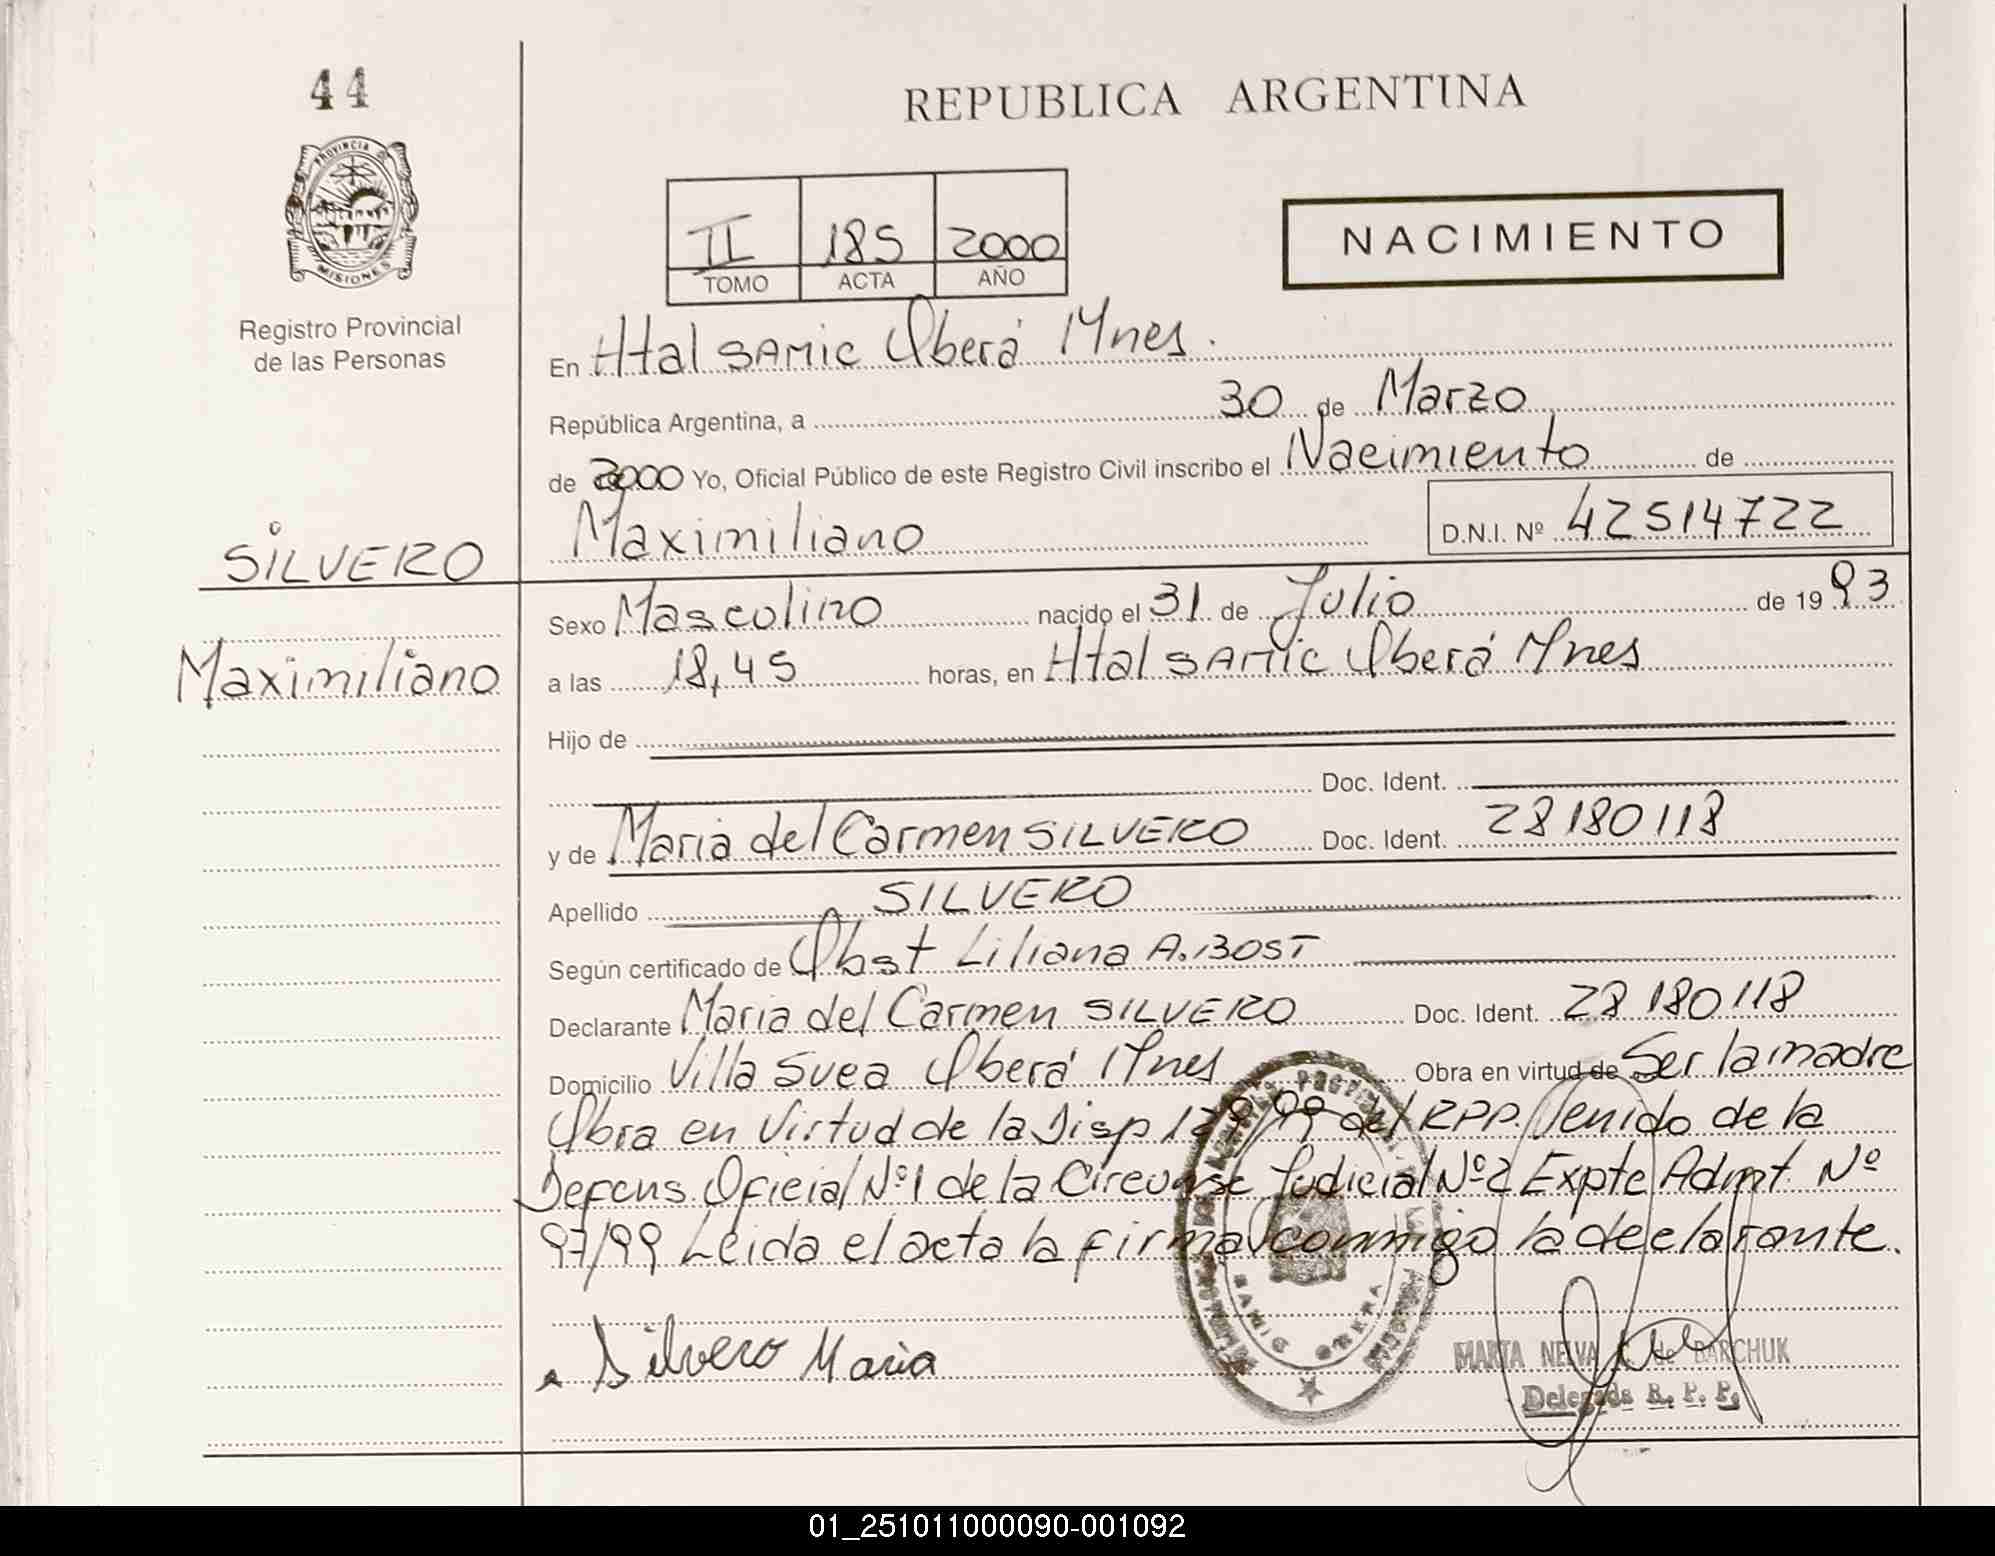 44
REPUBLICA ARGENTINA
PROVINCIA DE
MISIONES
Registro Provincial
de las Personas
II 185 2000
TOMO ACTA AÑO
NACIMIENTO
En Htal SAMIC Oberá Mnes.
República Argentina, a 30 de Marzo
de 2000 Yo, Oficial Público de este Registro Civil inscribo el Nacimiento de
Maximiliano D.N.I. Nº 42514722
SILVERO
Maximiliano
Sexo Mascolino nacido el 31 de Julio de 1993
a las 18,45 horas, en Htal SAMIC Oberá Mnes
Hijo de
Doc. Ident.
y de Maria del Carmen SILVERO Doc. Ident. 28180118
Apellido SILVERO
Según certificado de Obst Liliana A. BOST
Declarante Maria del Carmen SILVERO Doc. Ident. 28180118
Domicilio Villa Svea Oberá Mnes Obra en virtud de Ser la madre
Obra en Virtud de la Disp 129/99 del RPP. Venido de la
Defens. Oficial Nº1 de la Circunsc Judicial Nº2 Expte Admt. Nº
97/99 Leida el acta la firma conmigo la declarante.
Silvero Maria
SAMIC OBERA
MARTA NELVA de BARCHUK
Delegada R. P. P.
01_251011000090-001092